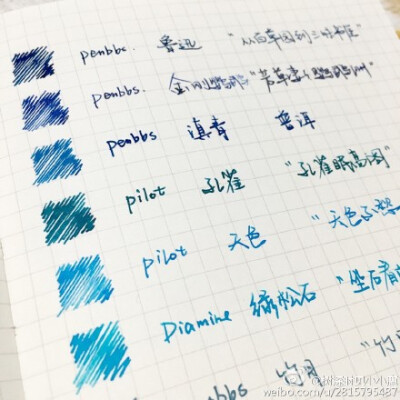 penbbc. 鲁迅 "从百草园到三味书屋
penbbs. 金刚
penbbs 滇青 普洱
pilot 孔雀 "孔雀眼高阁"
pilot 天色 "天色不
Diamine 绿松石 "坐石看
bbs 竹月 "竹
weibo.com/u/2815795487